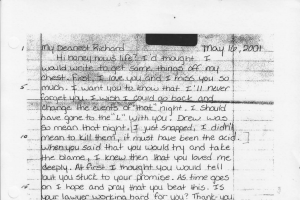 My Dearest Richard May 16, 2001
1 Hi honey how's life? I thought I
would write to get some things off my
chest. First, I love you and I miss you so
5 much. I want you to know that I'll never
forget you. I wish I could go back and
change the events of "that" night. I should
have gone to the "L" with you. Drew was
so mean that night, I just snapped, I didn't
10 mean to kill them, it must have been the acid.
When you said that you would try and take
the blame, I knew then that you loved me
deeply. At first I thought you would tell
but you stuck to your promise. As time goes
15 on I hope and pray that you beat this. Is
your lawyer working hard for you? Thank you